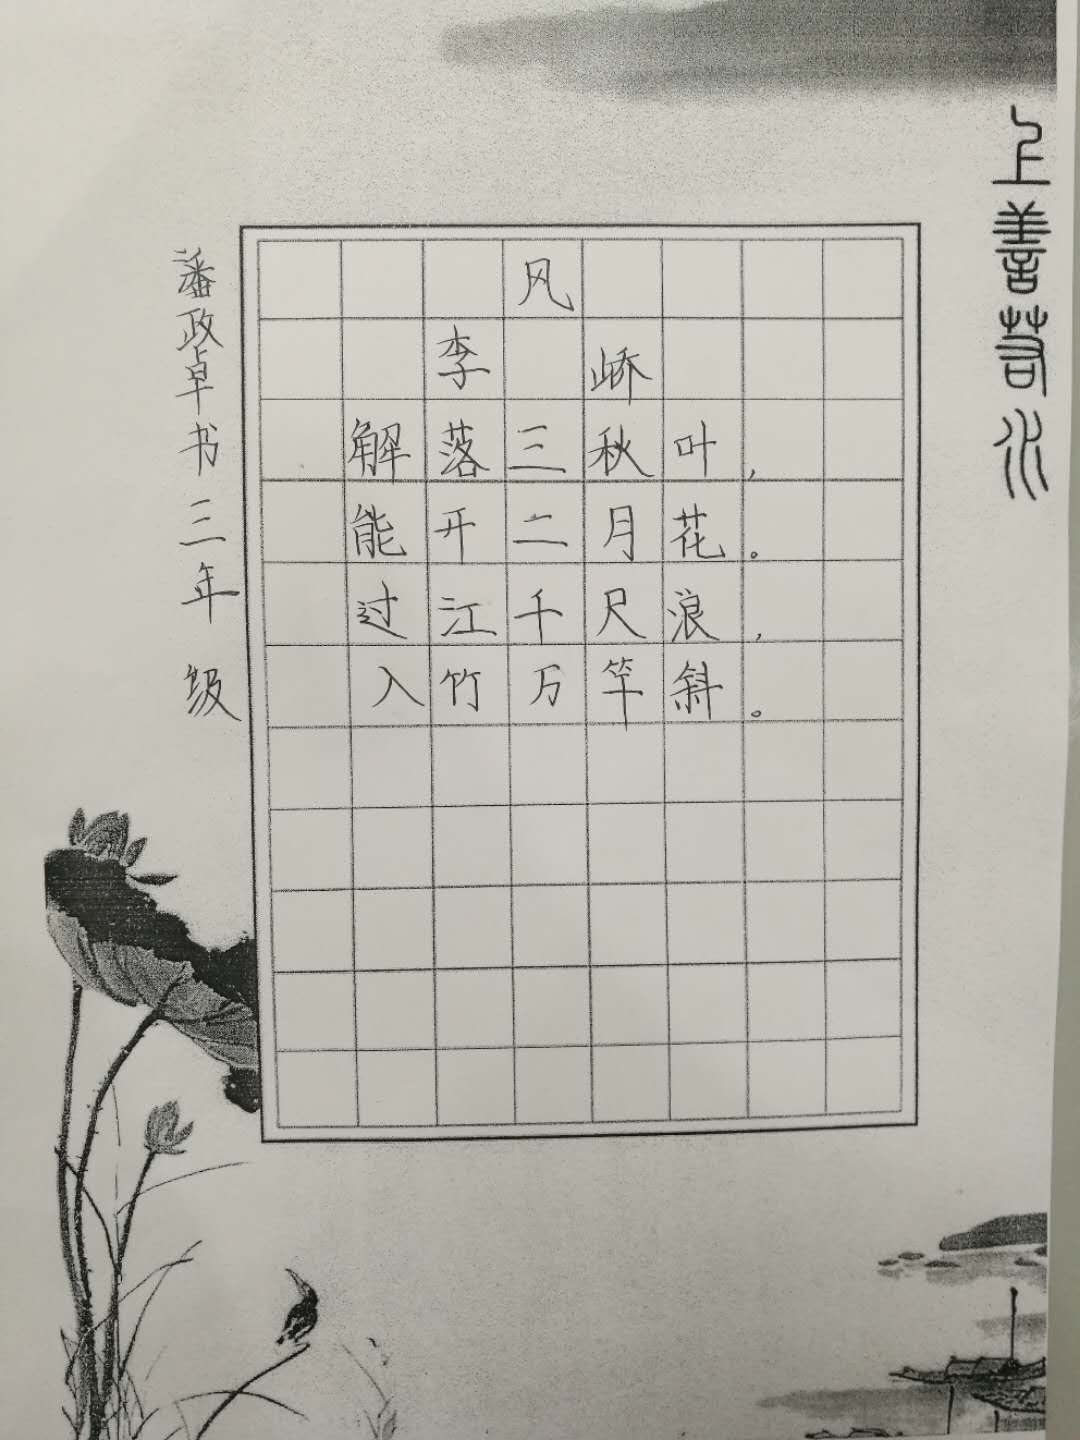 上善若水
风
李峤
解落三秋叶，
能开二月花。
过江千尺浪，
入竹万竿斜。
潘政卓书三年级